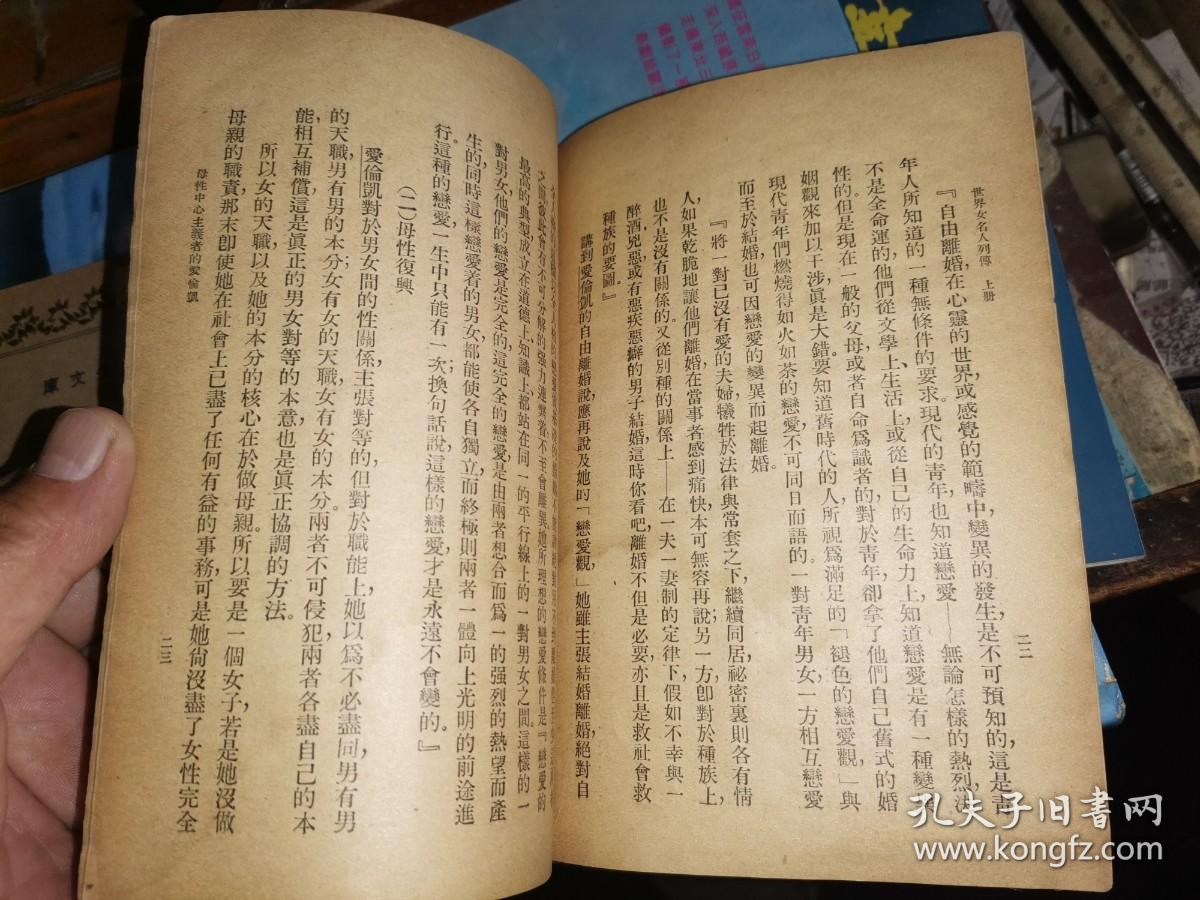 世界女名人列傳 上册
二二
『自由離婚在心靈的世界或感覺的範疇中變異的發生是不可預知的這是靑
年人所知道的一種無條件的要求。現代的靑年也知道戀愛——無論怎樣的熱烈決
不是全命運的他們從文學上生活上或從自己的生命力上知道戀愛是有一種變異
性的。但是現在一般的父母或者自命爲識者的對於靑年卻拿了他們自己舊式的婚
姻觀來加以干涉眞是大錯。要知道舊時代的人所視爲滿足的「褪色的戀愛觀」與
現代靑年們燃燒得如火如荼的戀愛不可同日而語的一對靑年男女一方相互戀愛
而至於結婚也可因戀愛的變異而起離婚。
『將一對已沒有愛的夫婦犧牲於法律與常套之下繼續同居祕密裏則各有情
人如果乾脆地讓他們離婚在當事者感到痛快本可無容再說另一方卽對於種族上
也不是沒有關係的。又從別種的關係上——在一夫一妻制的定律下假如不幸與一
醉酒兇惡或有惡疾惡癖的男子結婚這時你看吧離婚不但是必要亦且是救社會救
種族的要圖。』
講到愛倫凱的自由離婚說應再說及她的「戀愛觀」她雖主張結婚離婚絕對自
之間彼此會有不可分解的强力連繫着不至會離異。她所理想的戀愛條件是『戀愛的
最高的典型成立在道德上知識上都站在同一的平行線上的一對男女之間。這樣的一
對男女他們的戀愛是完全的這完全的戀愛是由兩者想合而爲一的强烈的熱望而產
生的同時這樣戀愛着的男女都能使各自獨立而終極則兩者一體向上光明的前途進
行這種的戀愛一生中只能有一次換句話說這樣的戀愛才是永遠不會變的。』
(二)母性復興
愛倫凱對於男女間的性關係主張對等的但對於職能上她以爲不必盡同男有男
的天職男有男的本分女有女的天職女有女的本分。兩者不可侵犯兩者各盡自己的本
能相互補償這是眞正的男女對等的本意也是眞正協調的方法。
所以女的天職以及她的本分的核心在於做母親所以要是一個女子若是她沒做
母親的職責那末卽使她在社會上已盡了任何有益的事務可是她尙沒盡了女性完全
母性中心主義者的愛倫凱
二三
文庫
孔夫子旧书网
www.kongfz.com